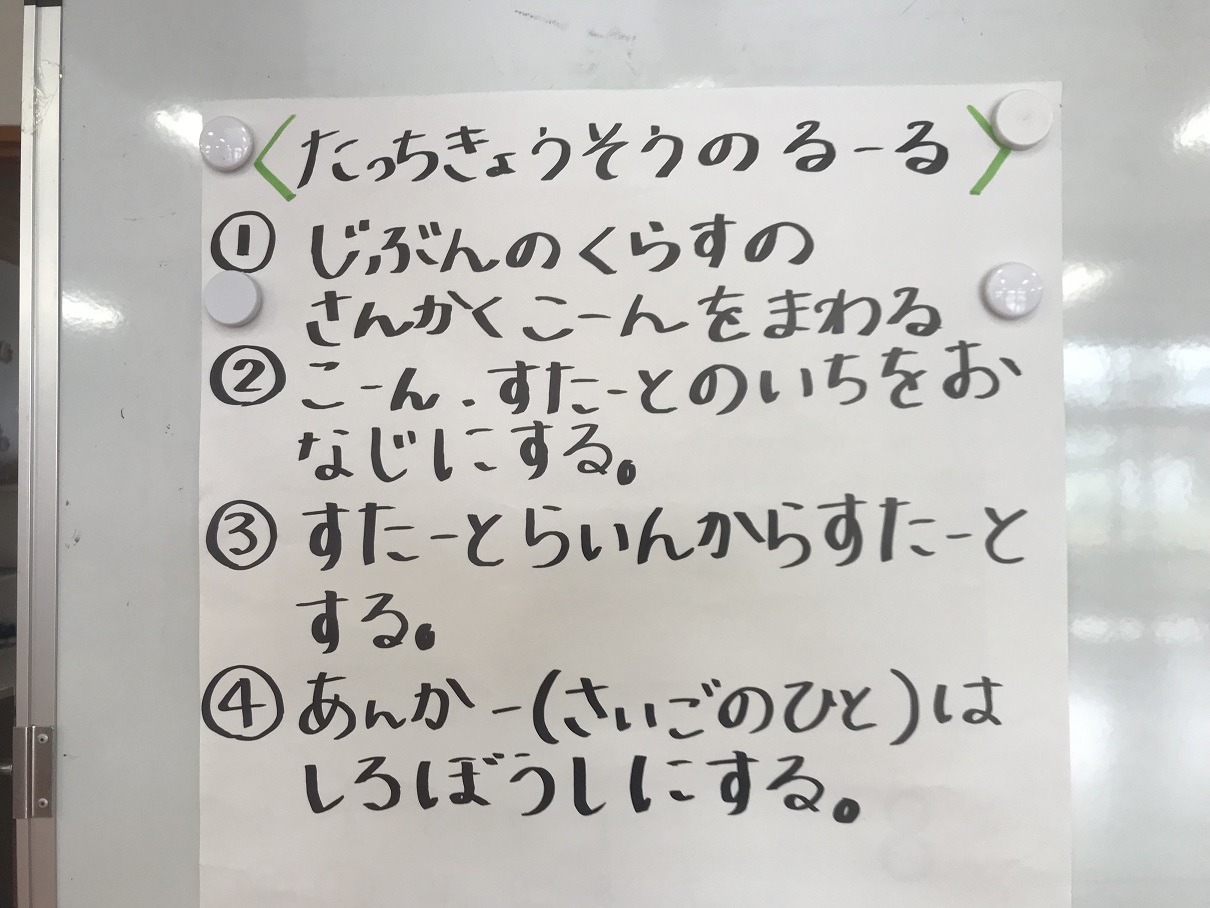 〈たっちきょうそうのるーる〉
① じぶんのくらすの
さんかくこーんをまわる
② こーん.すたーとのいちをお
なじにする。
③ すたーとらいんからすたーと
する。
④ あんかー(さいごのひと)は
しろぼうしにする。